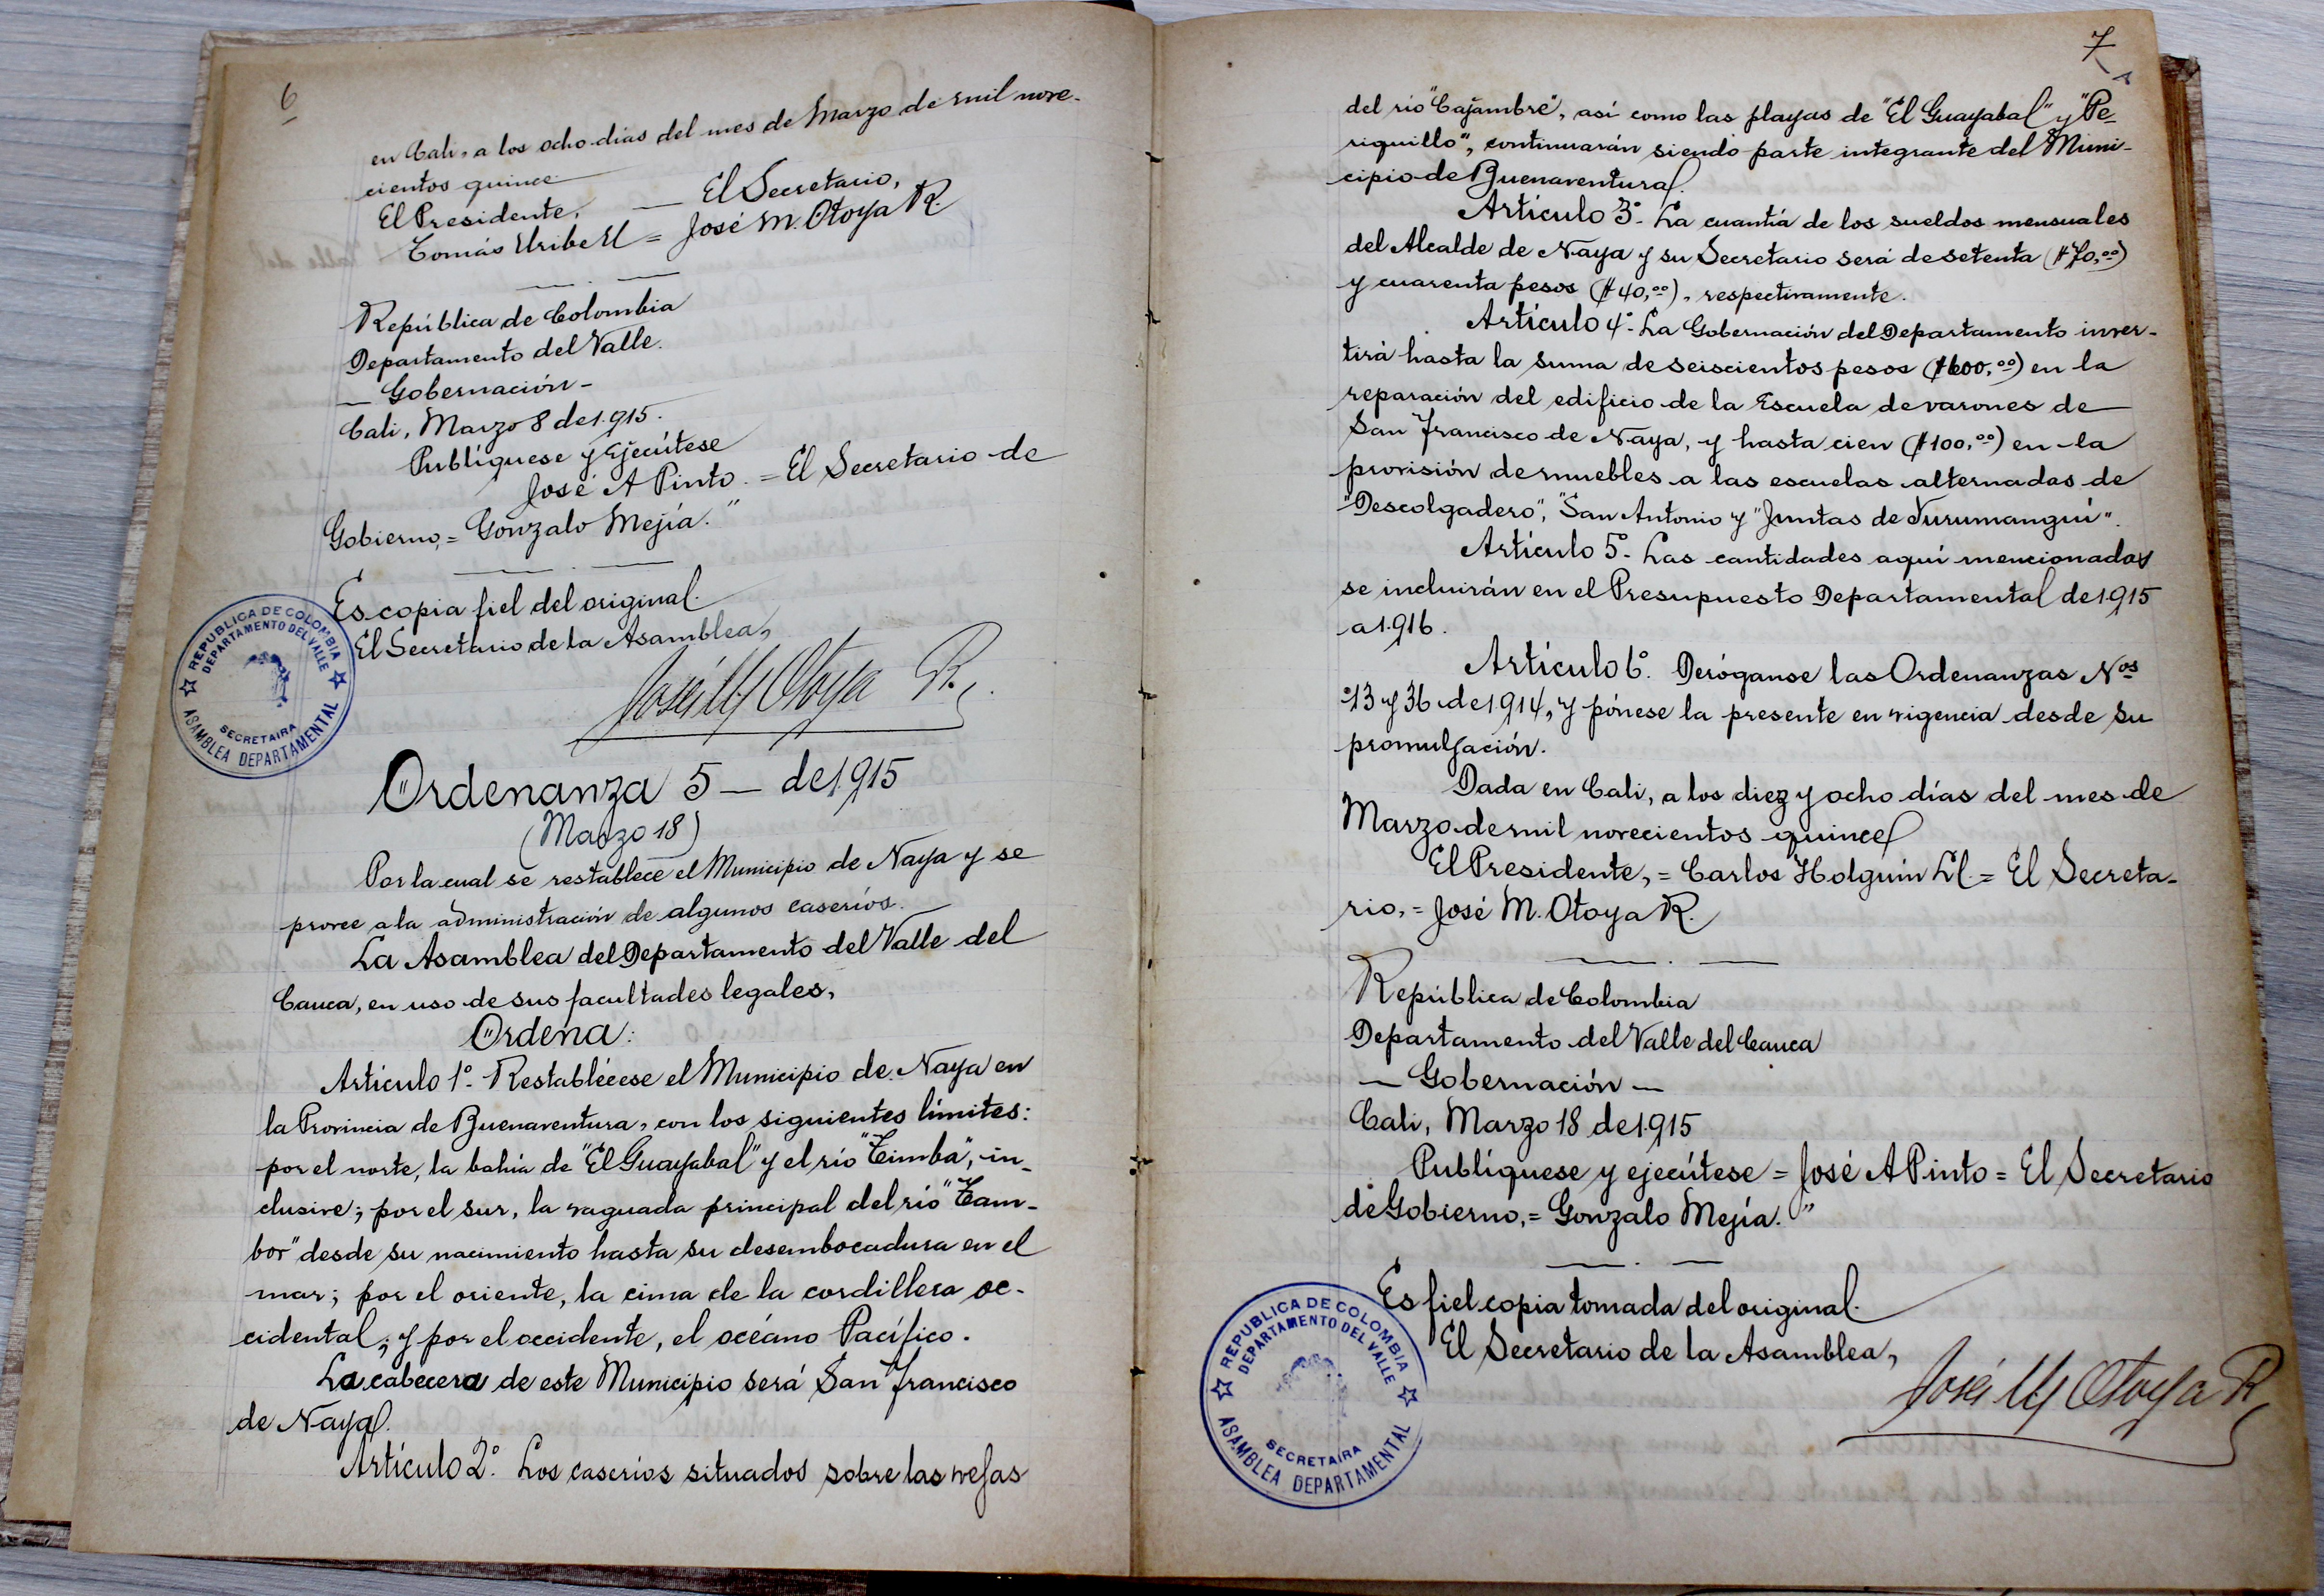 6
en Cali, a los ocho días del mes de Marzo de mil nove-
cientos quince
El Presidente, — El Secretario,
Tomás Uribe U = José M. Otoya R.
República de Colombia
Departamento del Valle.
— Gobernación —
Cali, Marzo 8 de 1.915.
Publíquese y Ejecútese
José A Pinto. = El Secretario de
Gobierno, = Gonzalo Mejía."
Es copia fiel del original.
El Secretario de la Asamblea,
José M Otoya R.
REPUBLICA DE COLOMBIA
DEPARTAMENTO DEL VALLE
SECRETAIRA
ASAMBLEA DEPARTAMENTAL
"Ordenanza 5 — de 1.915
(Marzo 18)
Por la cual se restablece el Municipio de Naya y se
provee a la administración de algunos caseríos.
La Asamblea del Departamento del Valle del
Cauca, en uso de sus facultades legales,
Ordena:
Artículo 1º.- Restablécese el Municipio de Naya en
la Provincia de Buenaventura, con los siguientes límites:
por el norte, la bahía de "El Guayabal" y el río "Timba", in-
clusive; por el sur, la vaguada principal del río "Tam-
bor" desde su nacimiento hasta su desembocadura en el
mar; por el oriente, la cima de la cordillera oc-
cidental; y por el occidente, el océano Pacífico.
La cabecera de este Municipio será San Francisco
de Naya.
Artículo 2º. Los caseríos situados sobre las vegas
7
del río "Cajambre", así como las playas de "El Guayabal" y "Pe-
riquillo", continuarán siendo parte integrante del Muni-
cipio de Buenaventura.
Artículo 3º.- La cuantía de los sueldos mensuales
del Alcalde de Naya y su Secretario será de setenta ($70,00)
y cuarenta pesos ($40,00), respectivamente.
Artículo 4º.- La Gobernación del Departamento inver-
tirá hasta la suma de seiscientos pesos ($600,00) en la
reparación del edificio de la Escuela de varones de
San Francisco de Naya, y hasta cien ($100,00) en la
provisión de muebles a las escuelas alternadas de
"Descolgadero", "San Antonio y "Juntas de Yurumanguí".
Artículo 5º.- Las cantidades aquí mencionadas
se incluirán en el Presupuesto Departamental de 1.915
a 1.916.
Artículo 6º. Deróganse las Ordenanzas Nos
13 y 36 de 1.914, y pónese la presente en vigencia desde su
promulgación.
Dada en Cali, a los diez y ocho días del mes de
Marzo de mil novecientos quince
El Presidente, = Carlos Holguín Ll. = El Secreta-
rio, = José M. Otoya R.
República de Colombia
Departamento del Valle del Cauca
— Gobernación —
Cali, Marzo 18 de 1.915
Publíquese y ejecútese = José A Pinto = El Secretario
de Gobierno, = Gonzalo Mejía."
Es fiel copia tomada del original.
El Secretario de la Asamblea,
José M Otoya R
REPUBLICA DE COLOMBIA
DEPARTAMENTO DEL VALLE
SECRETAIRA
ASAMBLEA DEPARTAMENTAL